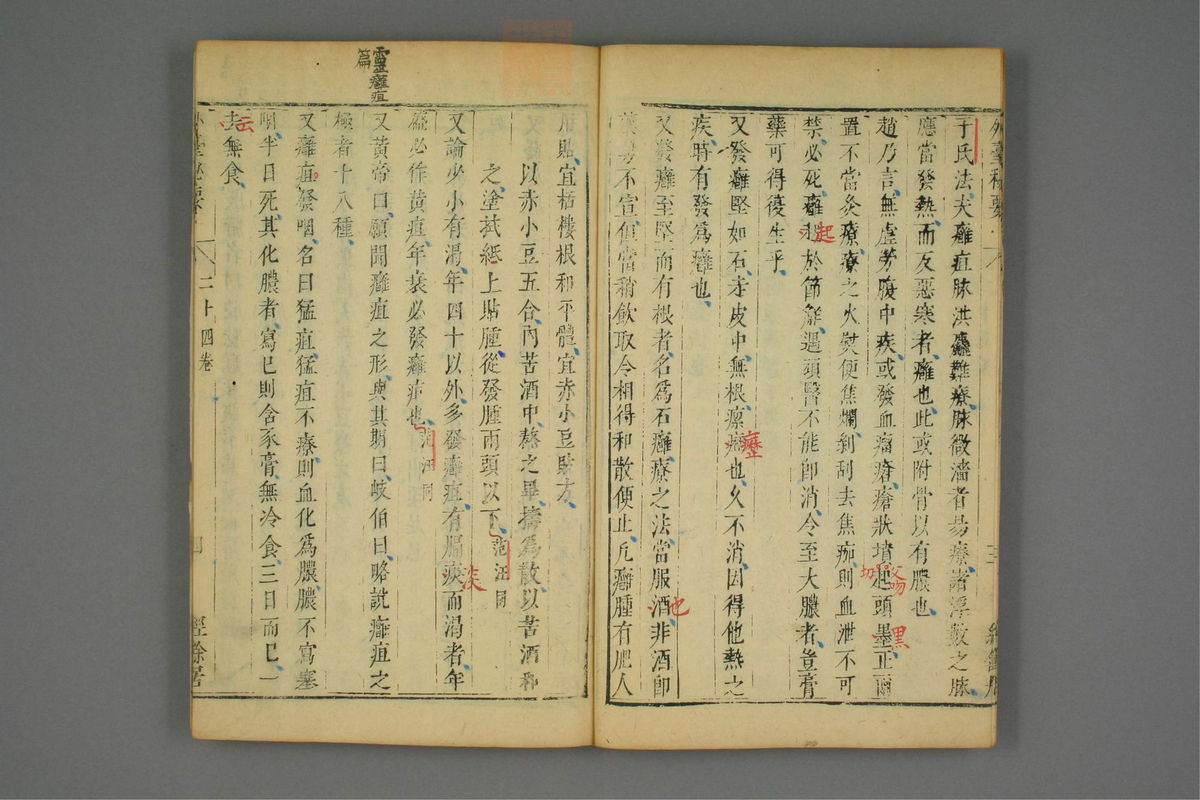 外臺秘要
于氏法夫癰疽脉洪麤難療脉微濇者易療諸浮數之脉
應當發熱而反惡寒者癰也此或附骨以有膿也
趙乃言無虛勞腹中疾或發血瘤瘡瘡狀墳起頭墨正爾
置不當灸療療之火熨便焦爛剝刮去焦痂則血泄不可
禁必死癰起於節解遇頭醫不能即消令至大膿者豈膏
藥可得復生乎
又發癰堅如石走皮中無根瘰癧也久不消因得他熱之
疾時有發爲癰也
又發癰至堅而有根者名爲石癰療之法當服酒非酒即
藥勢不宣但當稍飲取令相得和散便止凡癰腫有肥人
用貼宜栝樓根和平體宜赤小豆貼方
以赤小豆五合內苦酒中熬之畢擣爲散以苦酒和
之塗拭紙上貼腫從發腫兩頭以下范汪同
又論少小有渴年四十以外多發癰疽有膈痰而渴者年
盛必作黃疸年衰必發癰疽也范汪同
又黃帝曰願聞癰疽之形與其期日岐伯曰略說癰疽之
極者十八種
又癰疽發咽名曰猛疽猛疽不療則血化爲膿膿不寫塞
咽半日死其化膿者寫已則含豕膏無冷食三日而已一
去無食
二十四卷
四
經餘居
靈癰疽
篇
起
癧
黑
也
淡
云